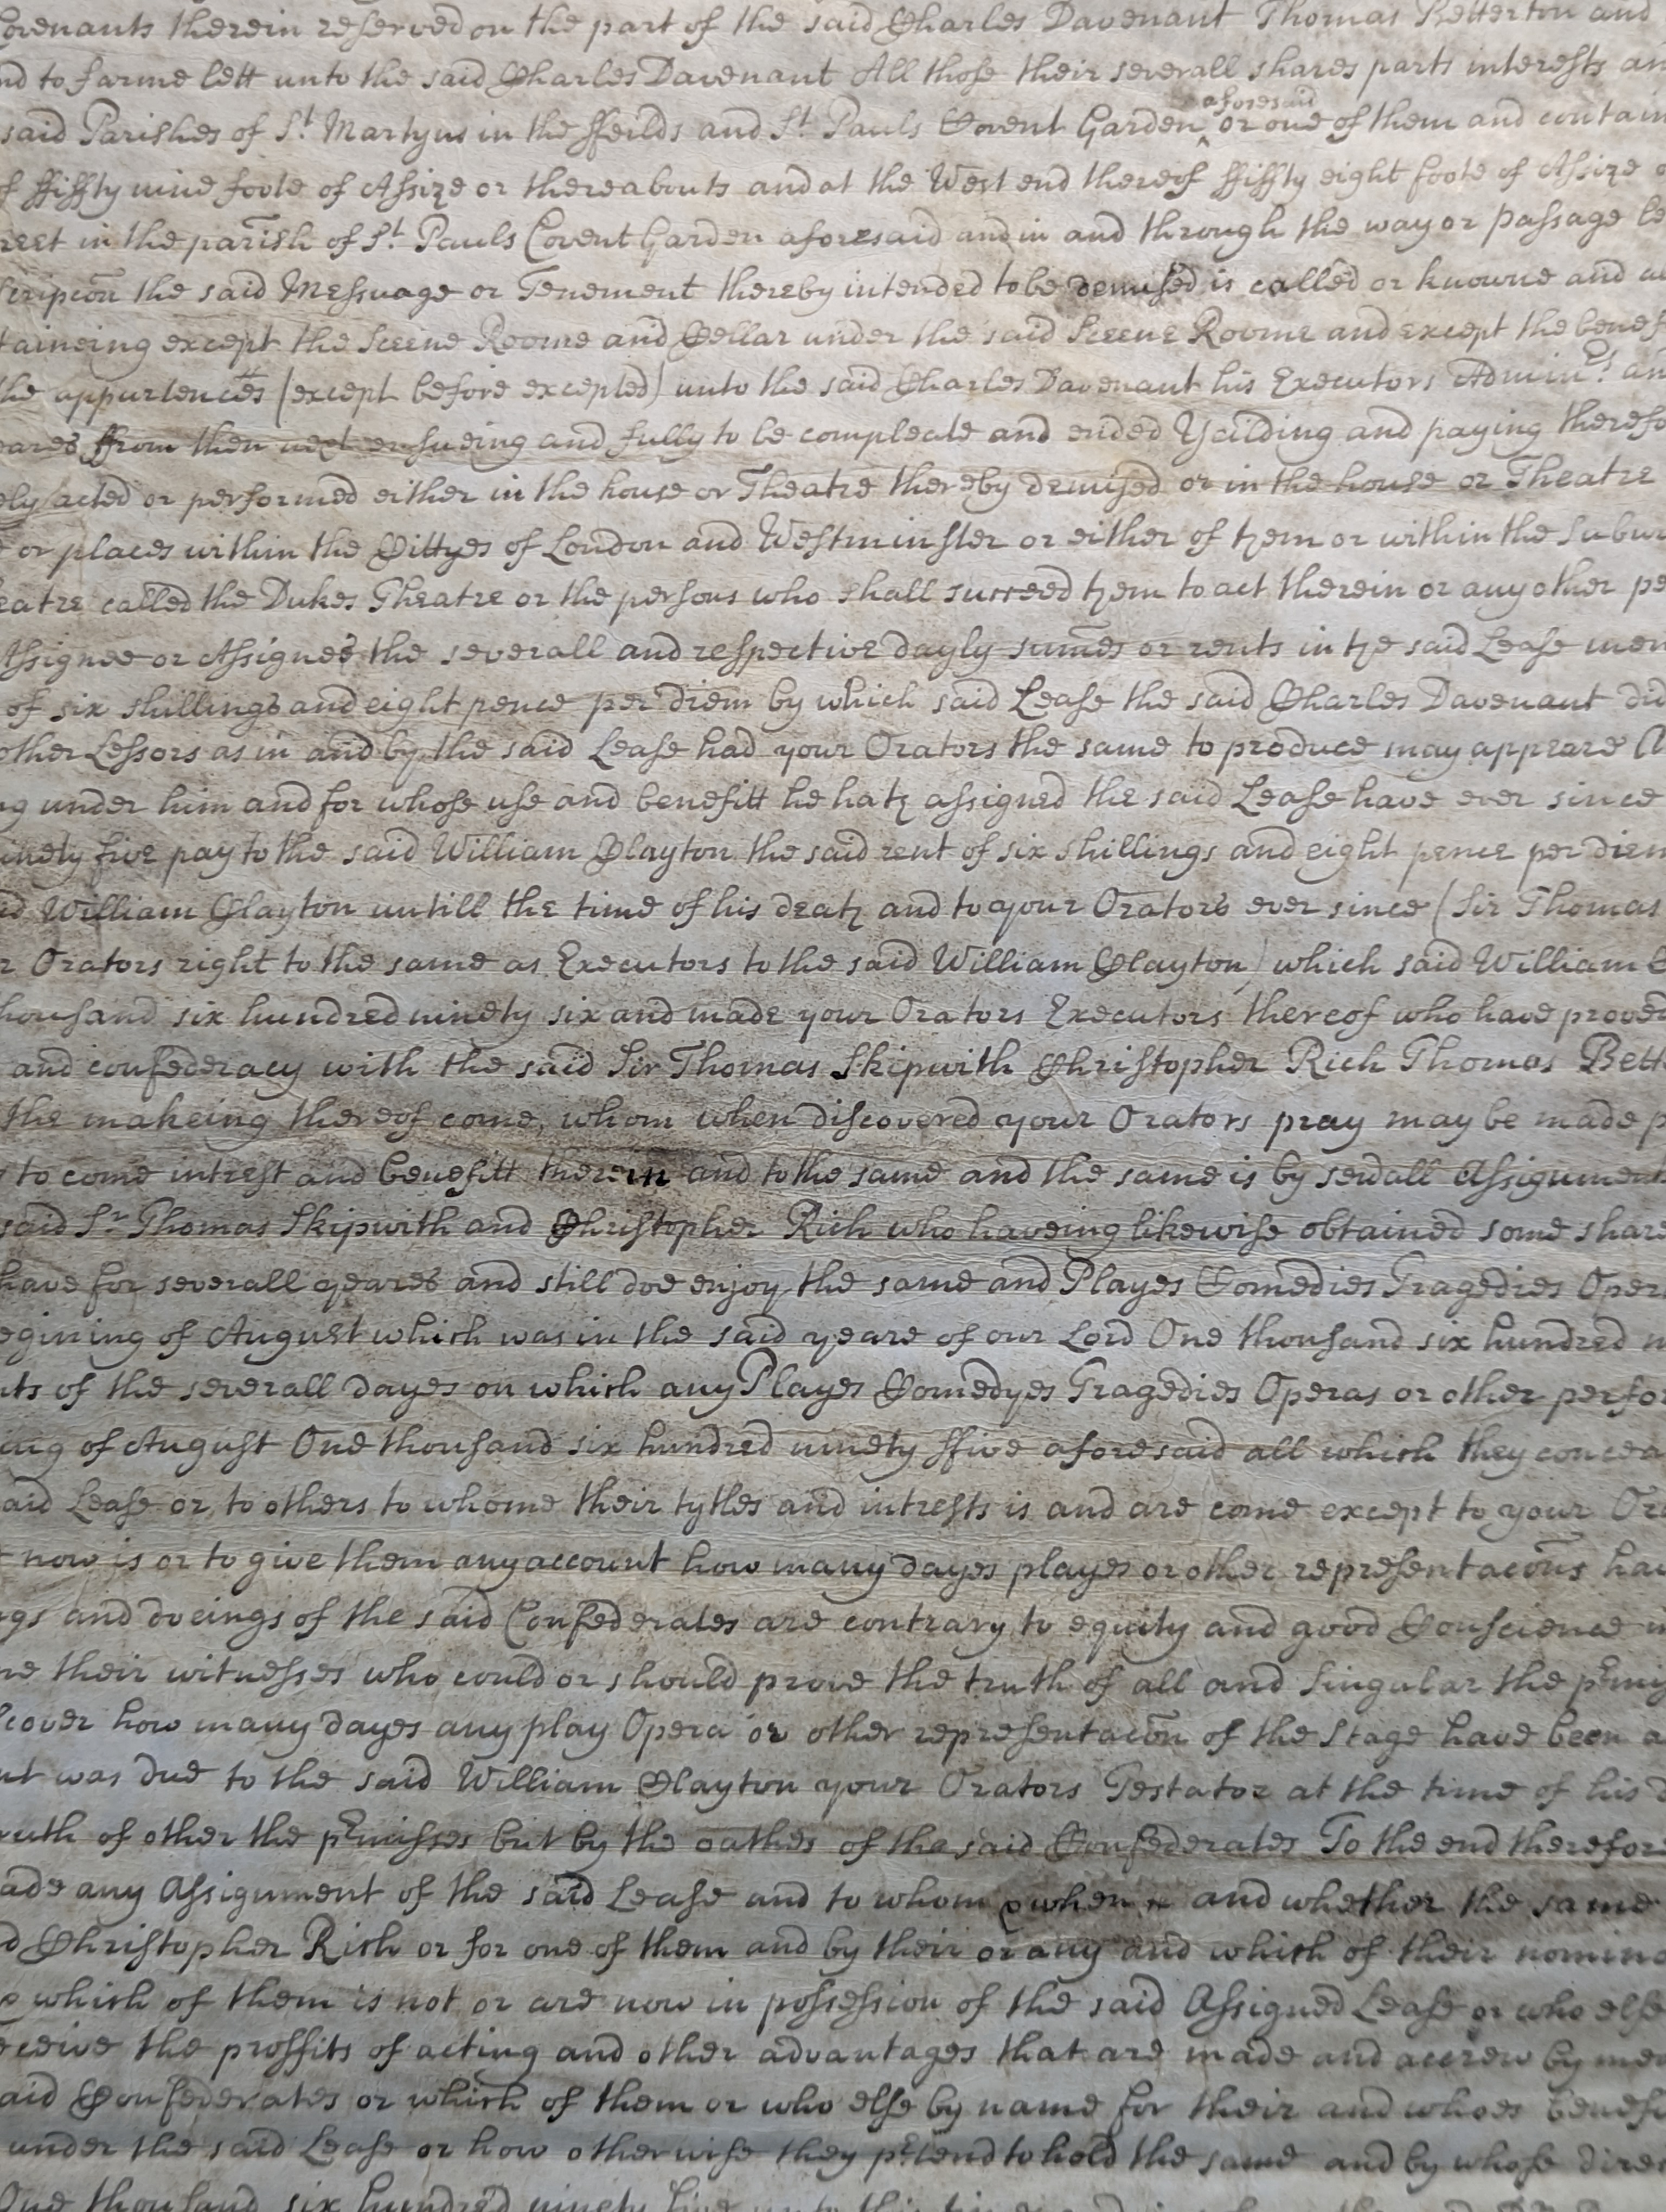 Covenants therein reserved on the part of the said Charles Davenant Thomas Betterton and
nd to farme lett unto the said Charles Davenant All those their severall shares parts interests an
said Parishes of St. Martyns in the ffeilds and St. Pauls Covent Garden aforesaid or one of them and contain
of ffiffty nine foote of Assize or thereabouts and at the West end thereof ffiffty eight foote of Assize o
reet in the parish of St. Pauls Covent Garden aforesaid and in and through the way or passage le
scripcon the said Messuage or Tenement thereby intended to be demised is called or knowne and
taineing except the Sceene Roome and Cellar under the said Sceene Roome and except the benef
the appurtences (except before excepted) unto the said Charles Davenant his Executors Admin.rs an
eares ffrom then next ensueing and fully to be compleate and ended Yeilding and paying therefo
ely acted or performed either in the house or Theatre thereby demised or in the house or Theatre
or places within the Cittyes of London and Westminster or either of them or within the Subur
eatre called the Dukes Theatre or the persons who shall succeed them to act therein or any other pe
Assignee or Assignes the severall and respective dayly sumes or rents in the said Lease men
of six shillings and eight pence per diem by which said Lease the said Charles Davenant did
other Lessors as in and by the said Lease had your Orators the same to produce may appeare A
ng under him and for whose use and benefitt he hath assigned the said Lease have ever since
inety five pay to the said William Clayton the said rent of six shillings and eight pence per diem
id William Clayton untill the time of his death and to your Orators ever since (Sir Thomas
r Orators right to the same as Executors to the said William Clayton) which said William C
housand six hundred ninety six and made your Orators Executors thereof who have proved
and confederacy with the said Sir Thomas Skipwith Christopher Rich Thomas Bett
the makeing thereof come, whom when discovered your Orators pray may be made p
to come intrest and benefitt therein and to the same and the same is by serall Assignment
said Sr Thomas Skipwith and Christopher Rich who haveing likewise obtained some share
have for severall yeares and still doe enjoy the same and Playes Comedies Tragedies Oper
egining of August which was in the said yeare of our Lord One thousand six hundred n
nts of the severall dayes on which any Playes Comedyes Tragedies Operas or other perfor
ing of August One thousand six hundred ninety ffive aforesaid all which they concea
aid Lease or to others to whome their tytles and intrests is and are come except to your Ora
now is or to give them any account how many dayes playes or other representacons hav
ngs and doeings of the said Confederates are contrary to equity and good Conscience
ne their witnesses who could or should prove the truth of all and singular the pmis
scover how many dayes any play Opera or other representacon of the Stage have been a
nt was due to the said William Clayton your Orators Testator at the time of his d
ruth of other the pmisses but by the oathes of the said Confederates To the end therefore
ade any Assignment of the said Lease and to whom & when and whether the same
d Christopher Rich or for one of them and by their or any and which of their nomina
& which of them is not or are now in possession of the said Assigned Lease or who else
eceive the proffits of acting and other advantages that are made and accrew by mea
aid Confederates or which of them or who else by name for their and whoes benefi
under the said Lease or how otherwise they ptend to hold the same and by whose direc
One thousand six hundred ninety five